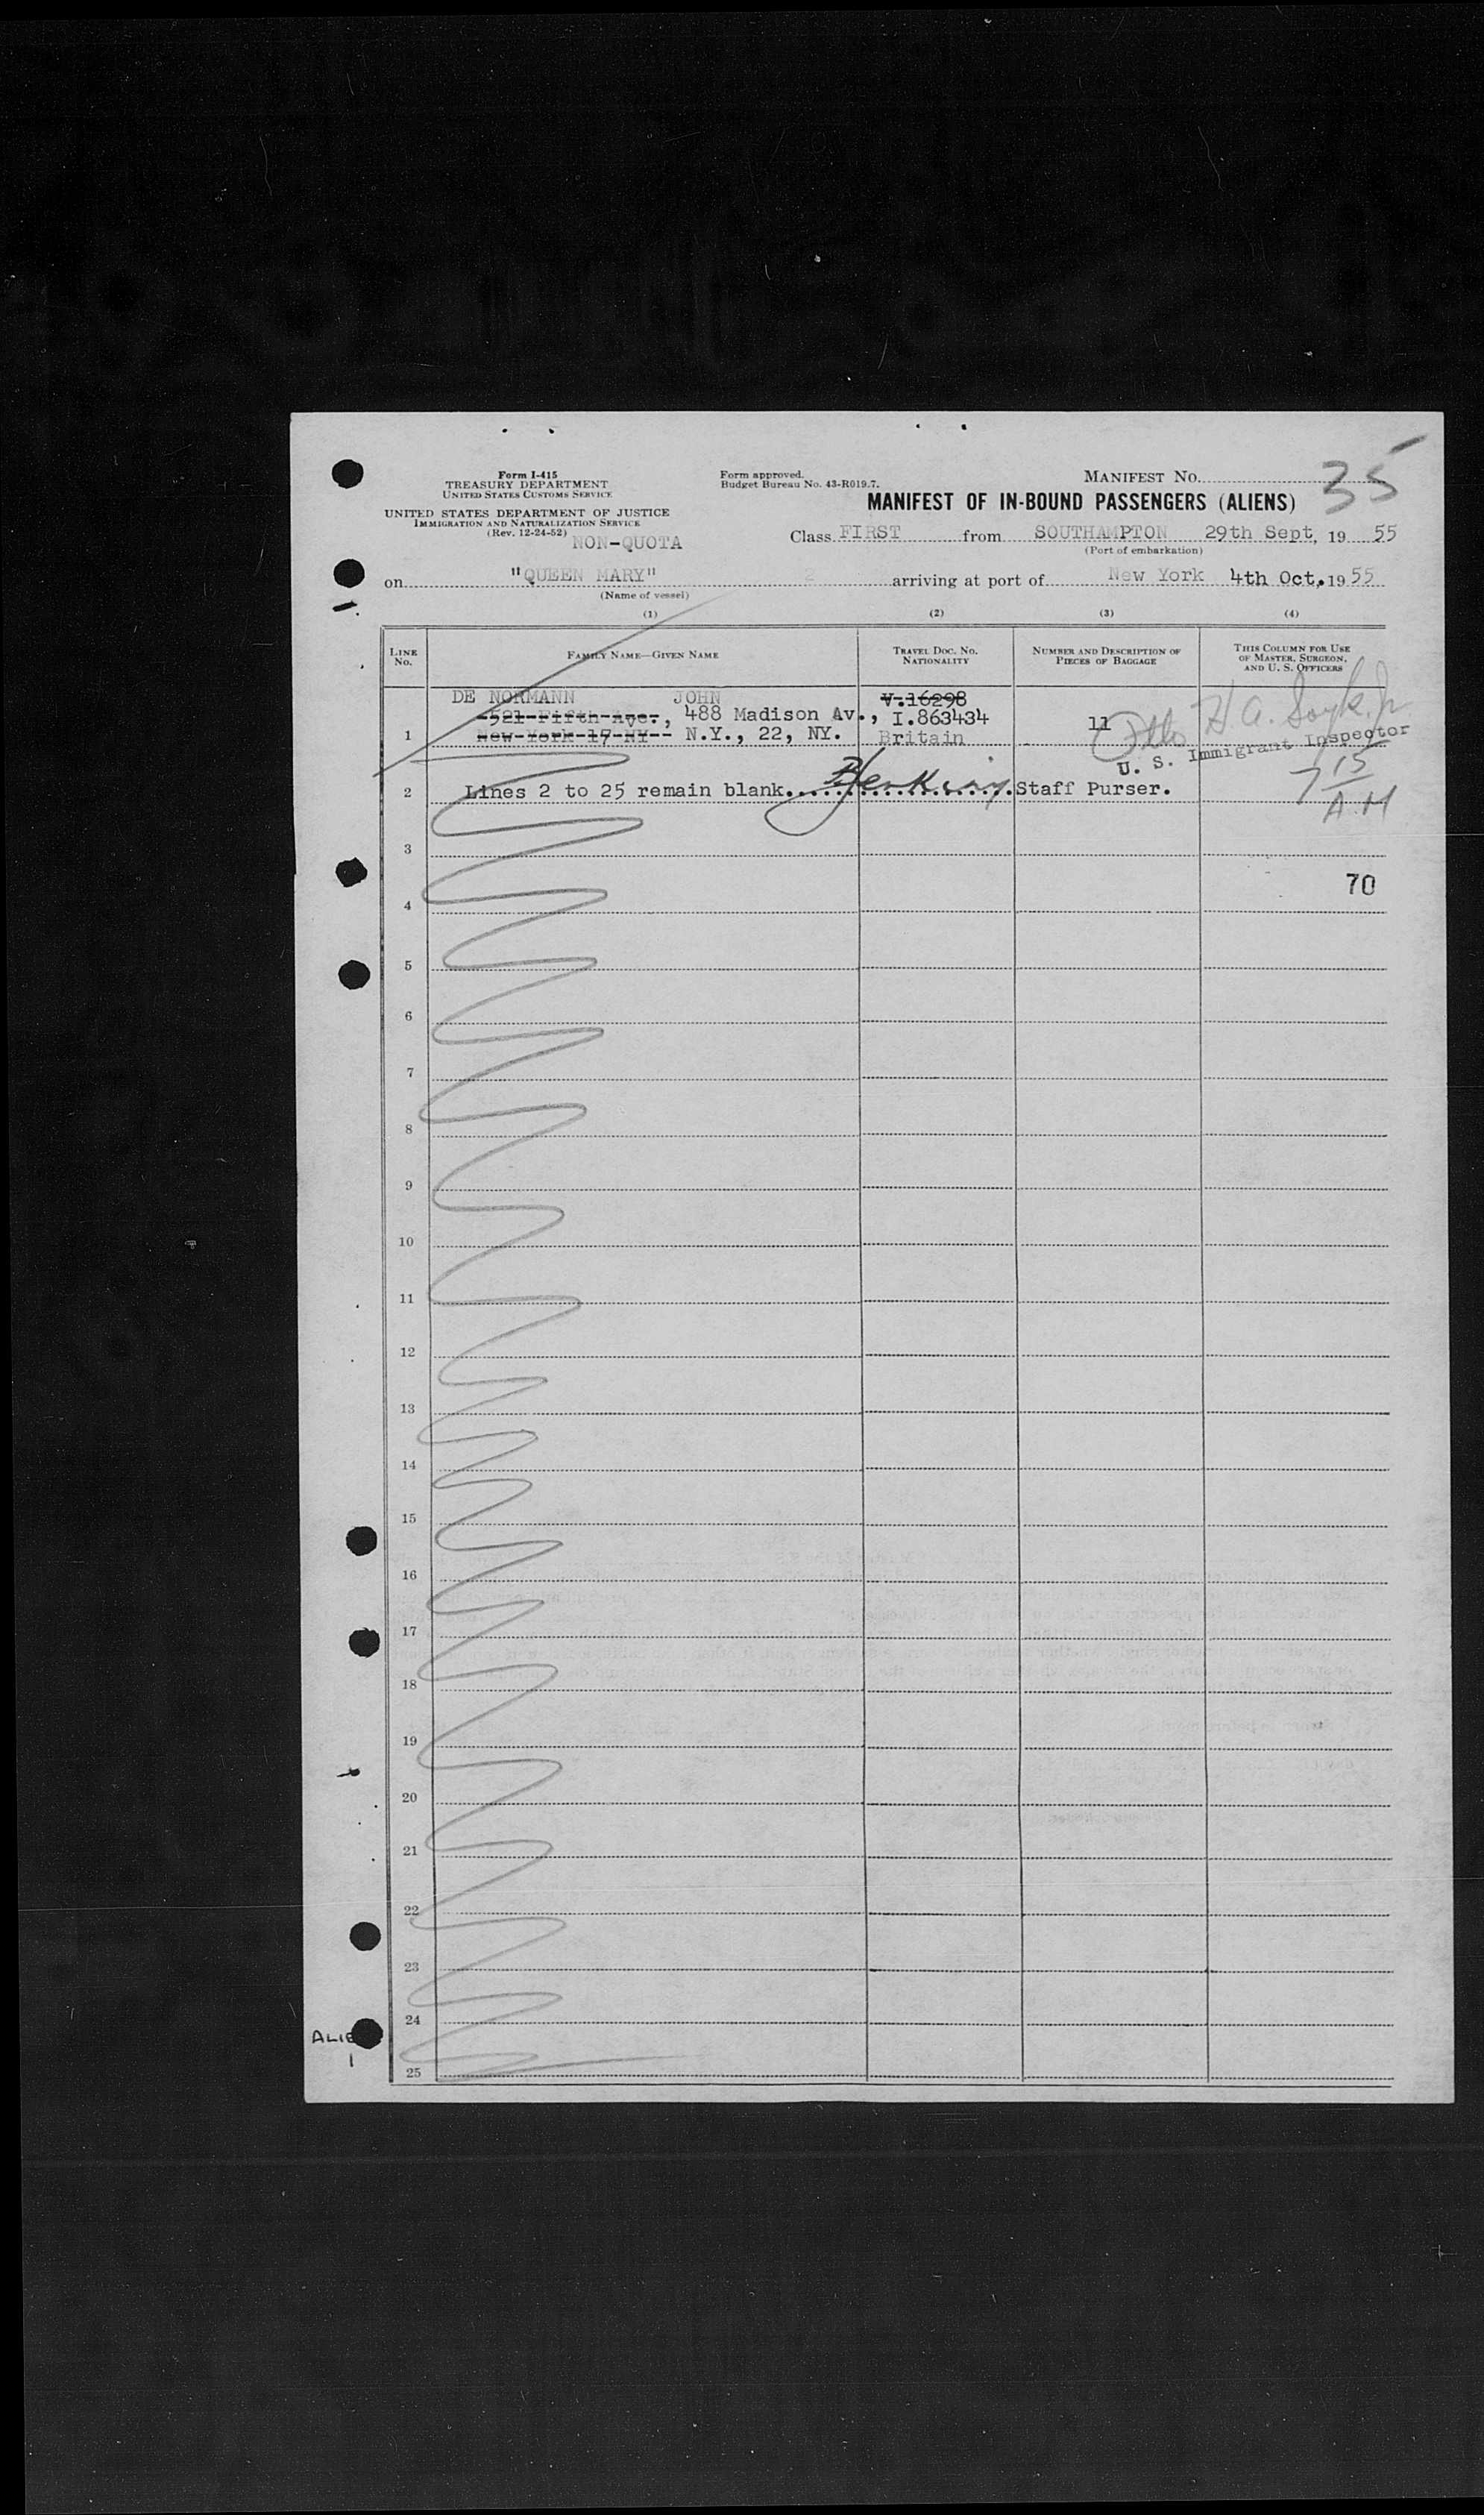 Form I-415
TREASURY DEPARTMENT
UNITED STATES CUSTOMS SERVICE
UNITED STATES DEPARTMENT OF JUSTICE
IMMIGRATION AND NATURALIZATION SERVICE
(Rev. 12-24-52)
NON-QUOTA
Form approved.
Budget Bureau No. 43-R019.7.
MANIFEST NO. 35
MANIFEST OF IN-BOUND PASSENGERS (ALIENS)
Class FIRST from SOUTHAMPTON 29th Sept, 19 55
(Port of embarkation)
on "QUEEN MARY" 2 arriving at port of New York 4th Oct. 19 55
(Name of vessel)
(1) (2) (3) (4)
LINE NO.
FAMILY NAME—GIVEN NAME
TRAVEL DOC. NO. NATIONALITY
NUMBER AND DESCRIPTION OF PIECES OF BAGGAGE
THIS COLUMN FOR USE OF MASTER, SURGEON, AND U. S. OFFICERS
DE NORMANN JOHN V.16298
521 Fifth Ave., 488 Madison Av., I.863434 11
1 New York 17 NY N.Y., 22, NY. Britain
Otto H. A.
U. S. Immigrant Inspector
7 15 A.M
2 Lines 2 to 25 remain blank. Jenkins Staff Purser.
3
70
4
5
6
7
8
9
10
11
12
13
14
15
16
17
18
19
20
21
22
23
24
ALIE
1
25